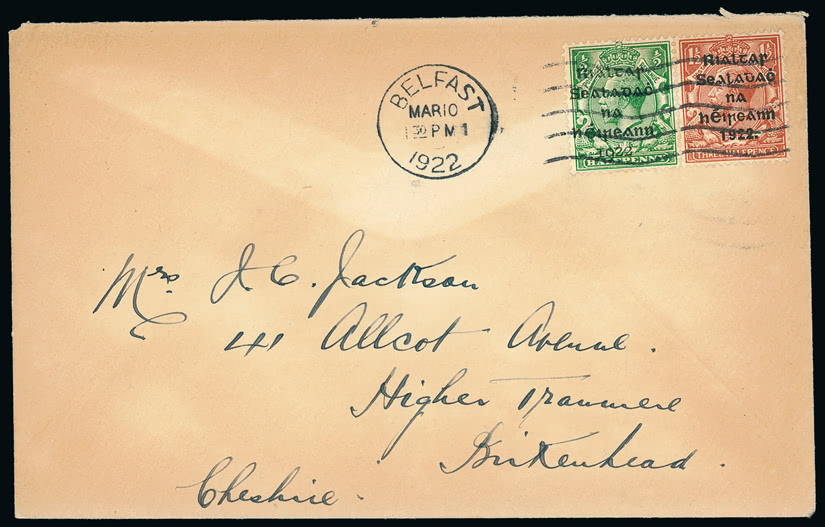 BELFAST
MAR 10
1 30 PM
1922
½ ½
Rialtar
Sealadaċ
na
hÉireann
1922.
HALFPENNY
1½ 1½
Rialtar
Sealadaċ
na
hÉireann
1922.
THREE HALFPENCE
Mrs. J. C. Jackson
41 Allcot Avenue.
Higher Tranmere
Birkenhead.
Cheshire.